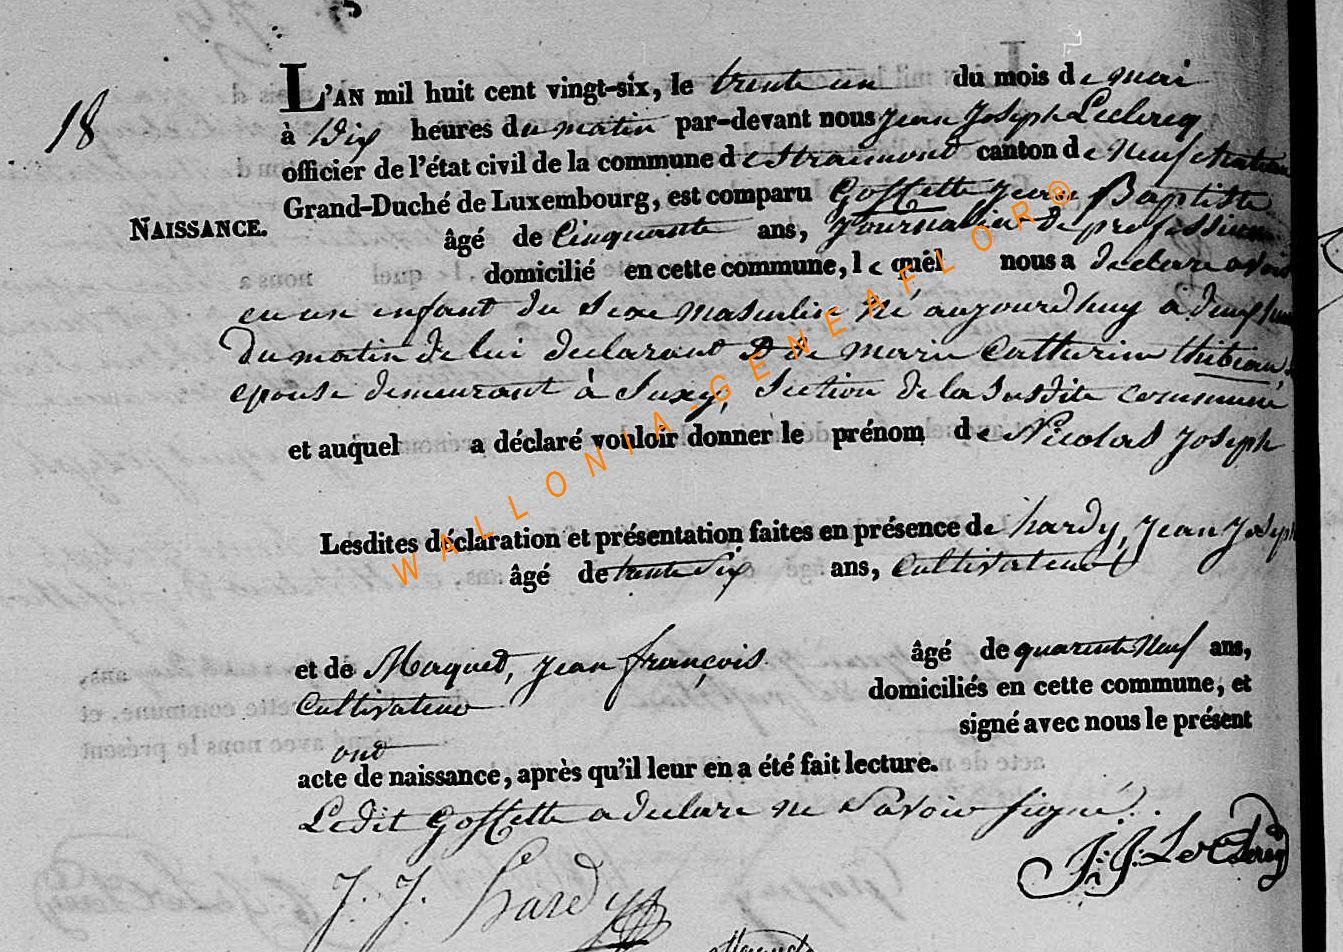 18
L'AN mil huit cent vingt-six, le trente un du mois de mai
à Dix heures du matin par-devant nous Jean Joseph Leclercq
officier de l'état civil de la commune de Straimont canton de Neufchateau
Grand-Duché de Luxembourg, est comparu Gossette Jean Baptiste
NAISSANCE.
âgé de Cinquante ans, Journalier de profession
domicilié en cette commune, lequel nous a declare avoir
eu un enfant du Sexe masculin né aujourdhuy à
Du matin de lui declarant & de marie Catherine thibeau,
epouse demeurant à Suxy, Section de la susdite commune
et auquel a déclaré vouloir donner le prénom de Nicolas Joseph
Lesdites déclaration et présentation faites en présence de hardy, Jean Joseph
âgé de trente Six ans, Cultivateur
et de Maquet, Jean françois âgé de quarente Neuf ans,
Cultivateur domiciliés en cette commune, et
ont signé avec nous le présent
acte de naissance, après qu'il leur en a été fait lecture.
Ledit Gossette a declare ne Savoir signé.
J. J. Hardy
J: J. Le Clercq
WALLONIA-GENEAFLOR®